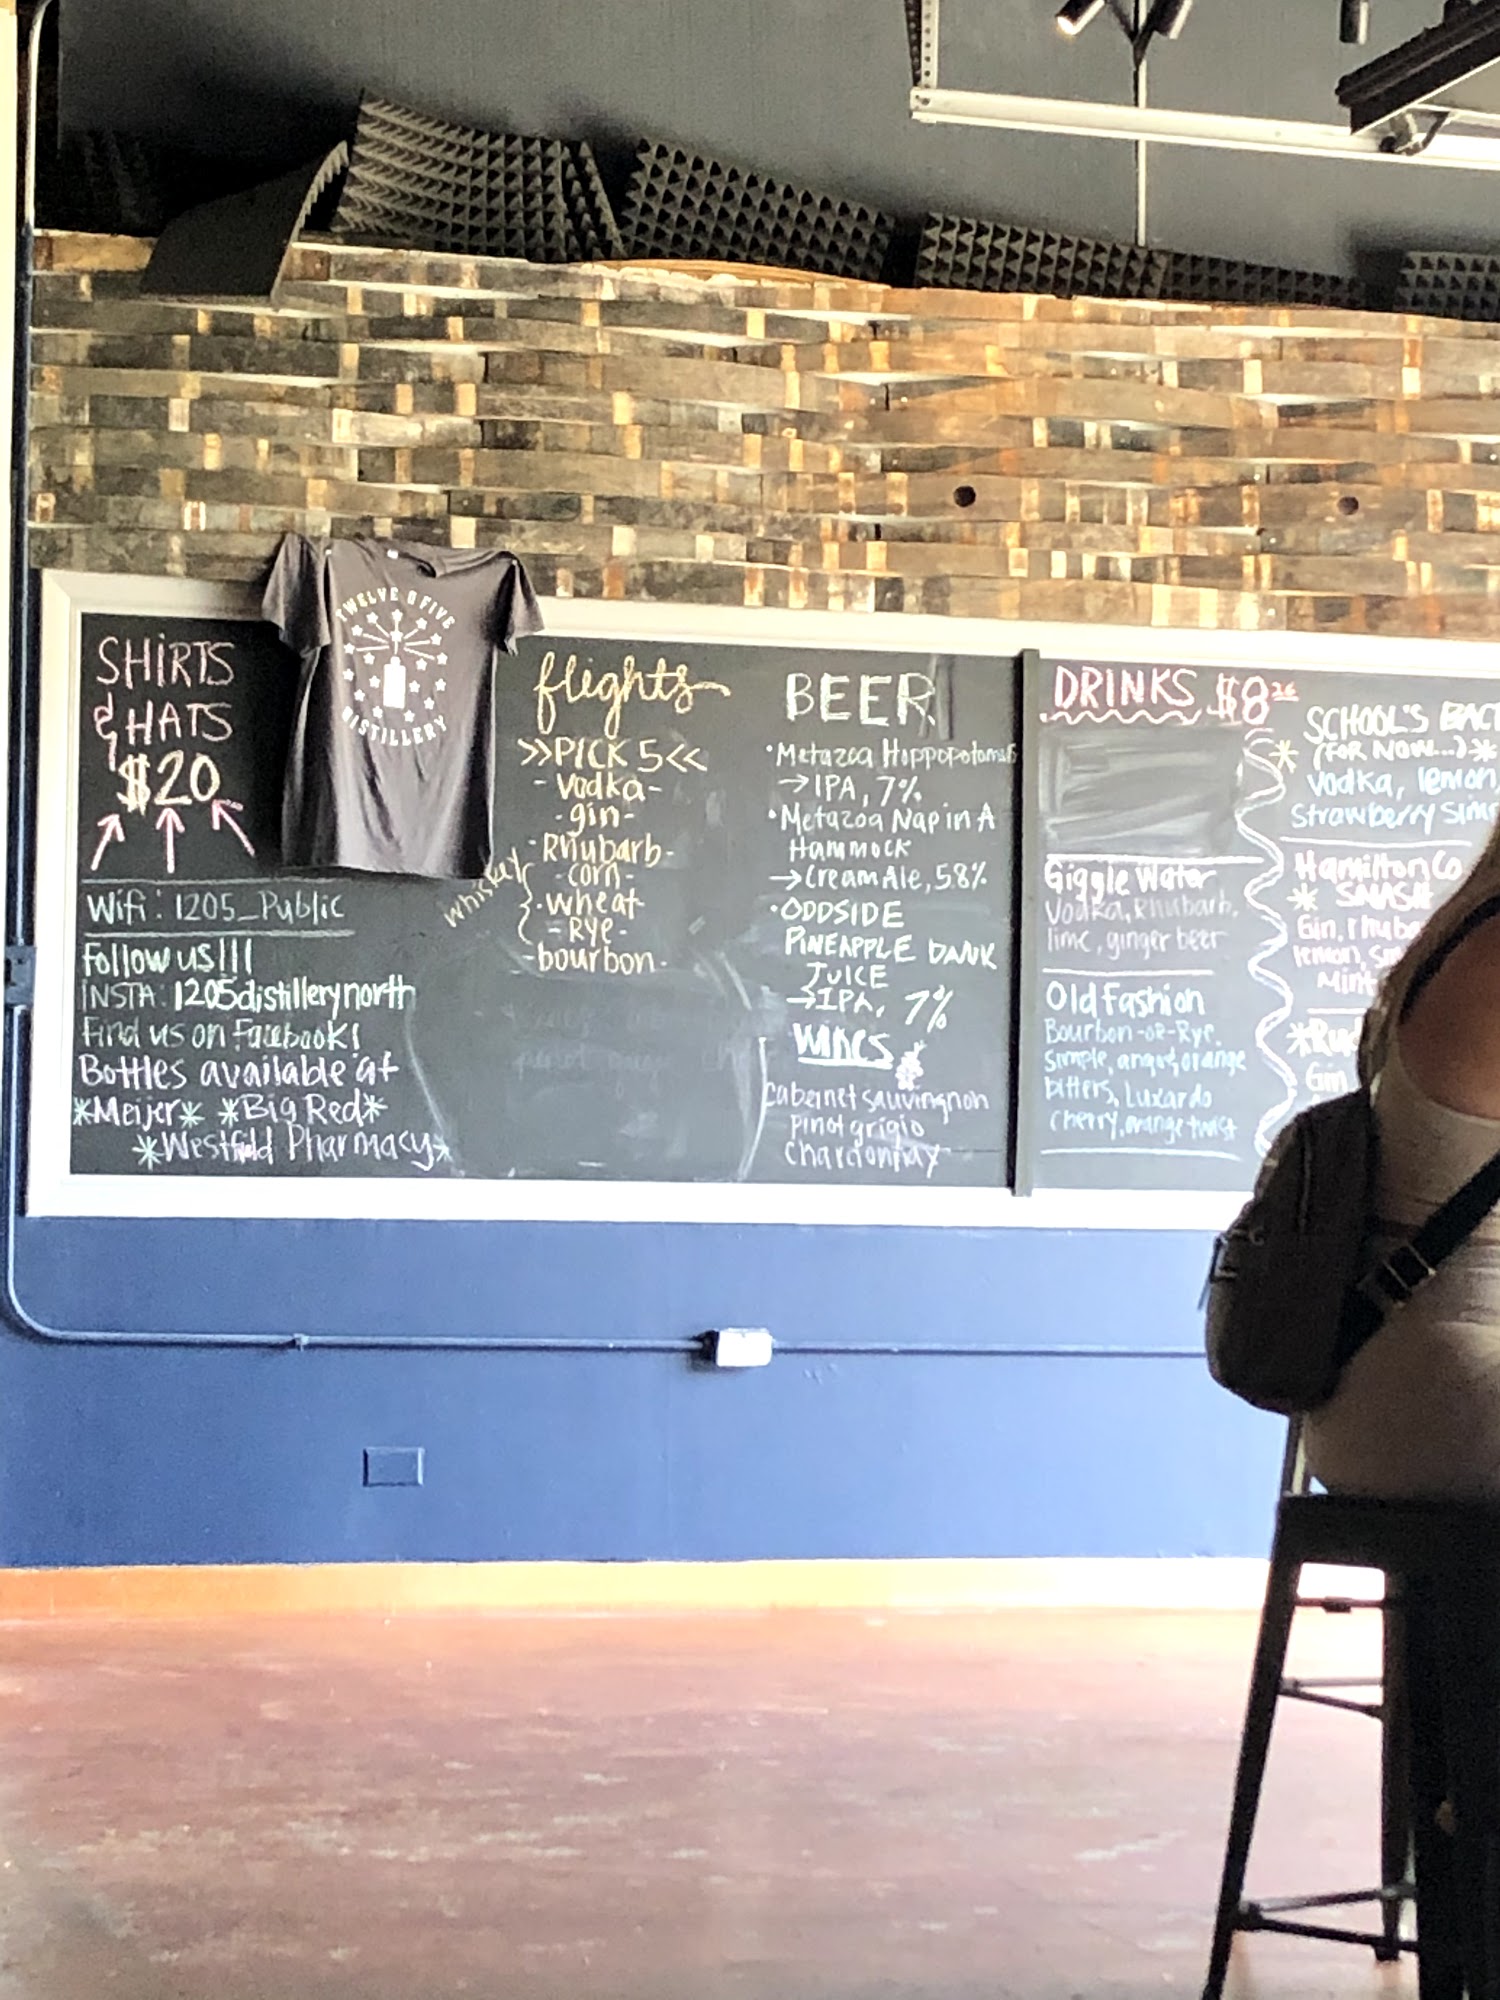 SHIRTS
& HATS
$20
TWELVE 0 FIVE
DISTILLERY
Wifi: 1205_Public
Follow us!!!
INSTA: 1205distillerynorth
Find us on Facebook!
Bottles available at
*Meijer* *Big Red*
*Westfield Pharmacy*
flights
>>PICK 5<<
-vodka-
-gin-
-Rhubarb-
whiskey
-corn-
-wheat
-Rye-
-bourbon-
BEER
•Metazoa Hoppopotamus
→IPA, 7%
•Metazoa Nap in A
Hammock
→Cream Ale, 5.8%
•ODDSIDE
PINEAPPLE DANK
JUICE
→IPA, 7%
WINES
Cabernet sauvingnon
pinot grigio
Chardonnay
DRINKS $8
Giggle Water
Vodka, Rhubarb,
lime, ginger beer
Old Fashion
Bourbon-or-Rye,
simple, ango, orange
bitters, Luxardo
cherry, orange twist
SCHOOL'S
*(FOR NOW...)*
vodka, lemon,
strawberry
Hamilton Co
* SMASH
Gin,
lemon,
Mint
Gin